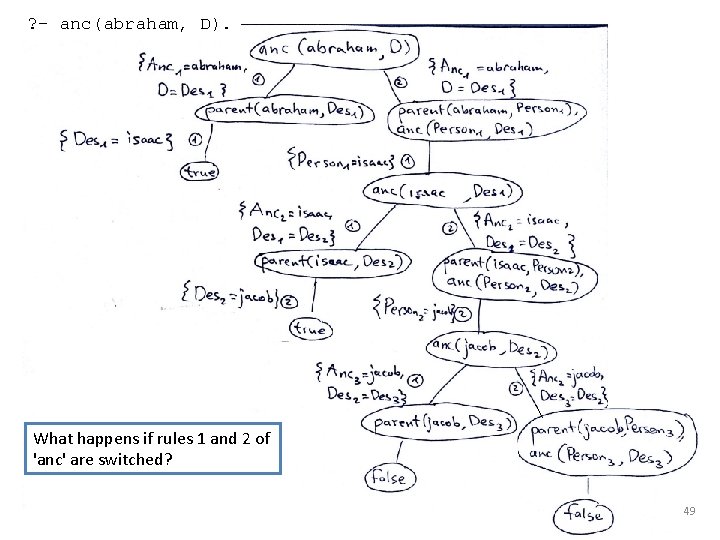 ? - anc(abraham, D).
anc (abraham, D)
{Anc₁=abraham,
D=Des₁}
①
②
{Anc₁=abraham,
D=Des₁}
parent(abraham, Des₁)
parent(abraham, Person₁),
anc(Person₁, Des₁)
{Des₁=isaac} ①
true
{Person₁=isaac} ①
anc(isaac, Des₁)
{Anc₂=isaac,
Des₁=Des₂}
①
②
{Anc₂=isaac,
Des₁=Des₂}
parent(isaac, Des₂)
parent(isaac, Person₂),
anc(Person₂, Des₂)
{Des₂=jacob} ②
true
{Person₂=jacob} ②
anc(jacob, Des₂)
{Anc₃=jacob,
Des₂=Des₃}
①
②
{Anc₂=jacob,
Des₃=Des₂}
parent(jacob, Des₃)
parent(jacob, Person₃),
anc(Person₃, Des₃)
false
false
What happens if rules 1 and 2 of
'anc' are switched?
49